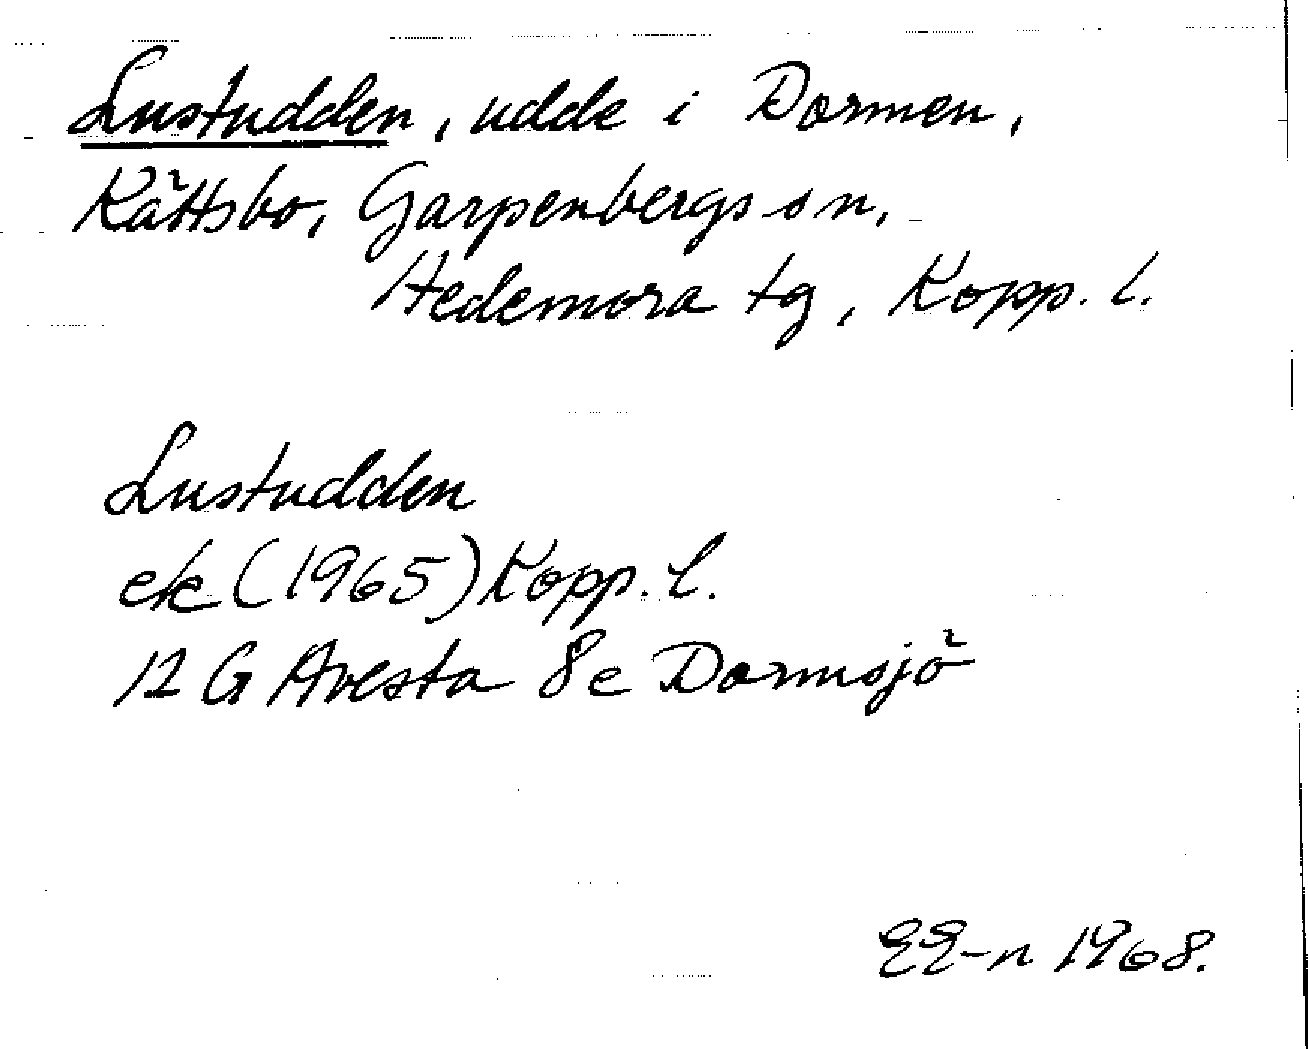 Lustudden, udde i Dormen,
Kåttsbo, Garpenbergs sn,
Hedemora tg, Kopp. l.
Lustudden
ek (1965) Kopp. l.
12 G Avesta 8e Dormsjö
EE-n 1968.